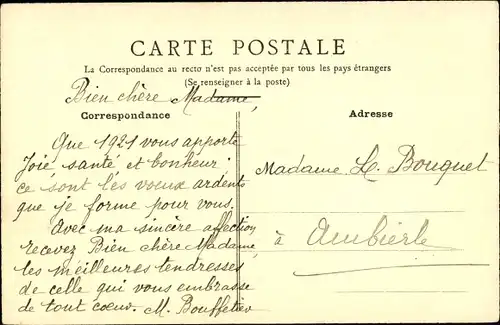 CARTE POSTALE
La Correspondance au recto n'est pas acceptée par tous les pays étrangers
(Se renseigner à la poste)
Bien chère Madame,
Correspondance
Adresse
Que 1921 vous apporte
Joie, santé et bonheur.
ce sont les voeux ardents
que je forme pour vous.
Avec ma sincère affection
recevez Bien chère Madame
les meilleures tendresses
de celle qui vous embrasse
de tout coeur. M.
Madame L. Bouquet
à Ambierle